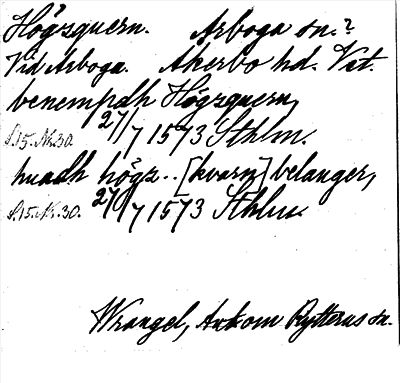 Högsquern. Arboga sn.?
Vid Arboga. Akerbo hd. Vst.
benempdh Högzquern,
S.15. Nr. 30. 27/7 1573 Sthlm.
huadh högz..[kvarn] belanger,
S.15. Nr. 30. 27/7 1573 Sthlm.
Wrangel, Ank om Rytterns sn.